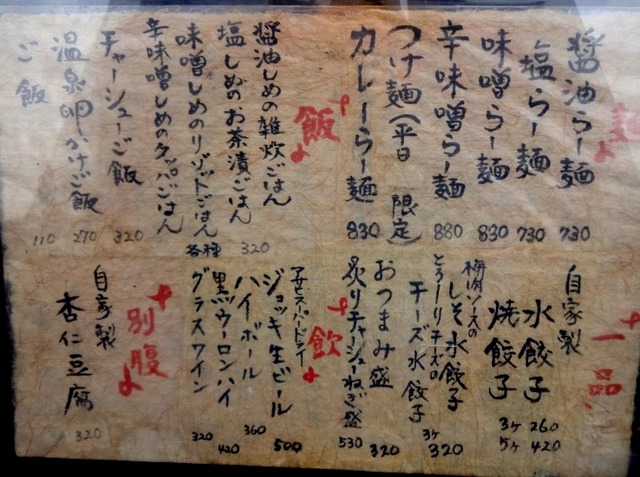 麺
醤油らー麺 730
塩らー麺 730
味噌らー麺 830
辛味噌らー麺 880
つけ麺(平日限定)
カレーらー麺 830
飯
醤油しめの雑炊ごはん
塩しめのお茶漬ごはん
味噌しめのリゾットごはん
辛味噌しめのクッパごはん
各種 320
チャーシューご飯 320
温泉卵かけご飯 270
ご飯 110
一品
自家製
水餃子
焼餃子
3ヶ 260
5ヶ 420
梅肉ソースの
しそ水餃子
とろ〜りチーズの
チーズ水餃子
3ヶ 320
おつまみ盛 320
炙りチャーシューねぎ盛 530
飲
アサヒスーパードライ
ジョッキ生ビール 500
ハイボール 360
黒ウーロンハイ 420
グラスワイン 320
別腹
自家製
杏仁豆腐
320